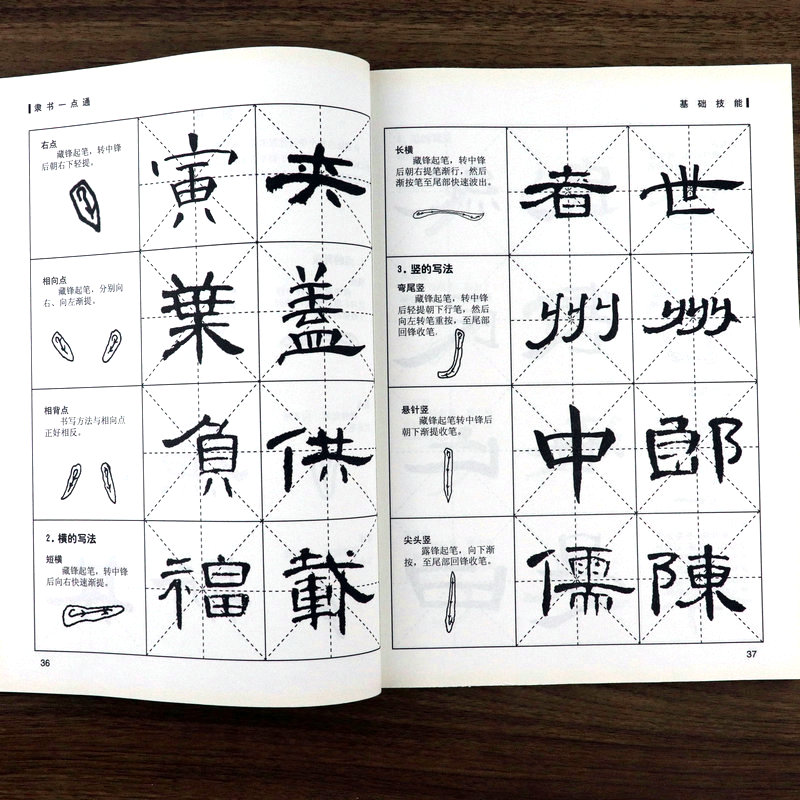 隶书一点通
右点
藏锋起笔，转中锋
后朝右下轻提。
寅
相向点
藏锋起笔，分别向
右、向左渐提。
葉 蓋
相背点
书写方法与相向点
正好相反。
負 供
2. 横的写法
短横
藏锋起笔，转中锋
后向右快速渐提。
福 載
36
基础技能
长横
藏锋起笔，转中锋
后朝右提笔渐行，然后
渐按笔至尾部快速波出。
者 世
3. 竖的写法
弯尾竖
藏锋起笔，转中锋
后轻提朝下行笔，然后
向左转笔重按，至尾部
回锋收笔。
州 州
悬针竖
藏锋起笔转中锋后
朝下渐提收笔。
中 郎
尖头竖
露锋起笔，向下渐
按，至尾部回锋收笔。
儒 陳
37